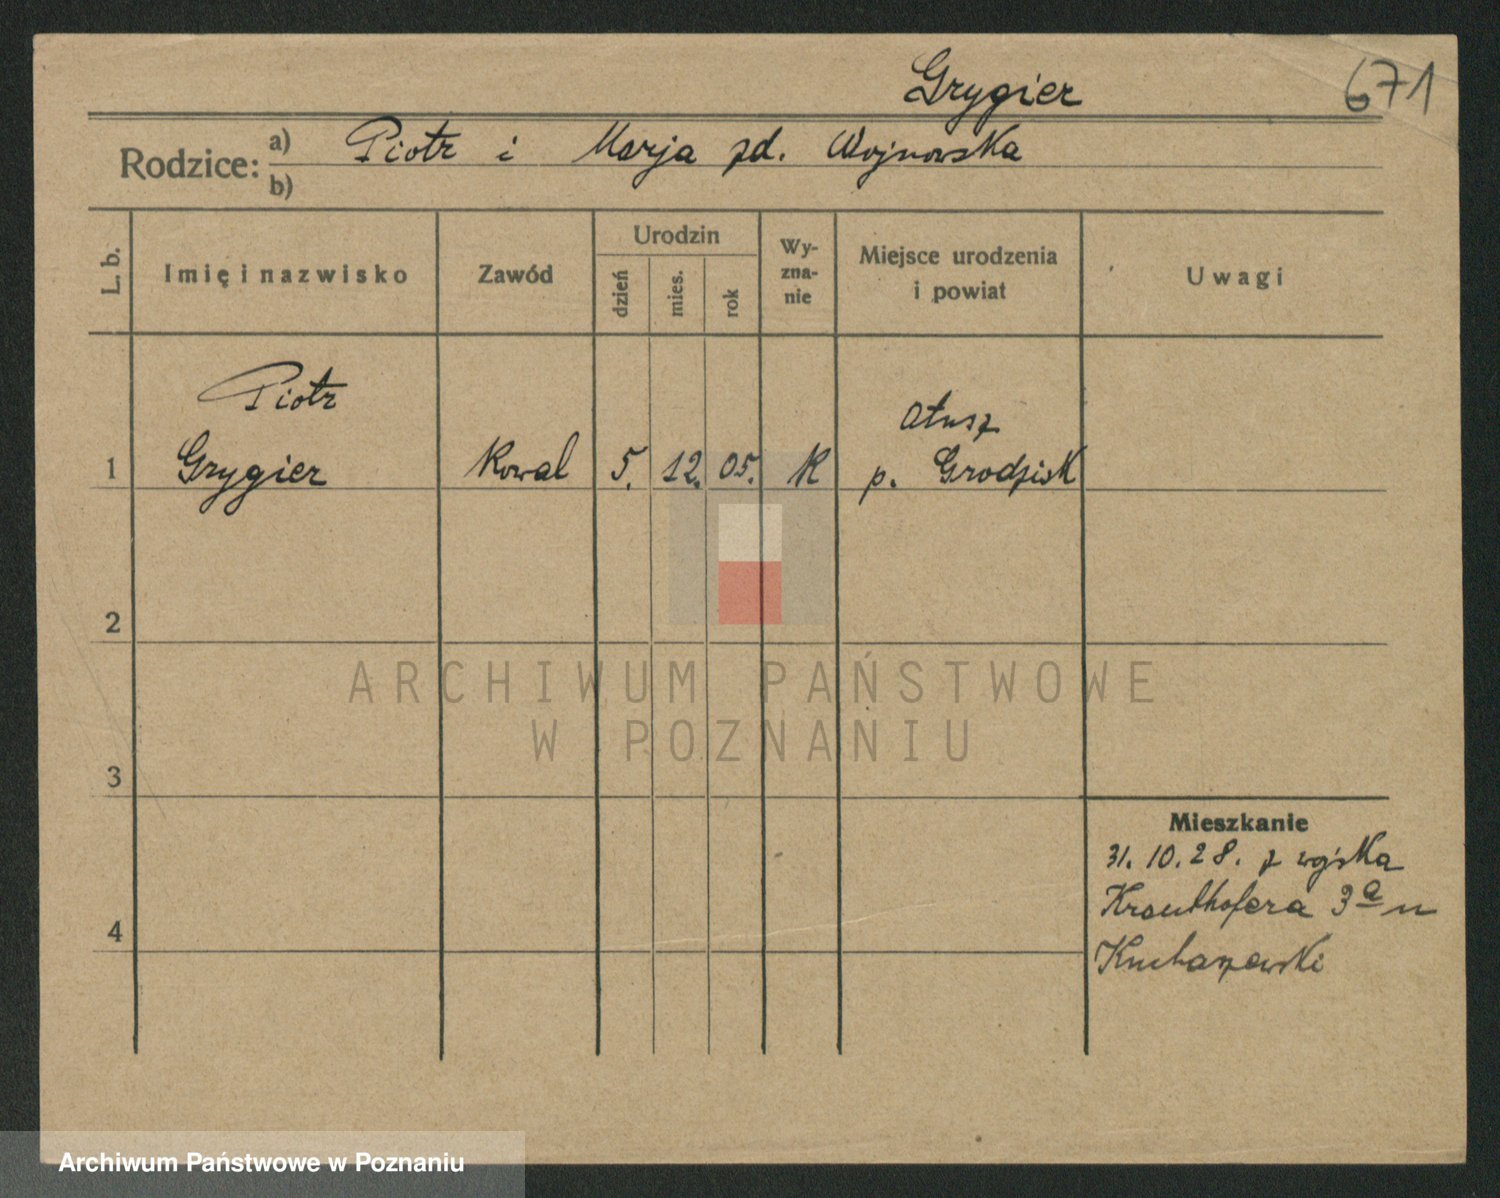 Grygier
671
Rodzice: a) Piotr i Marja zd. Wojnowska
b)
L. b.
Imię i nazwisko
Zawód
Urodzin
dzień
mies.
rok
Wy-
zna-
nie
Miejsce urodzenia
i powiat
Uwagi
Piotr
1 Grygier Kowal 5. 12. 05. K
Otusz
p. Grodzisk
2
3
4
ARCHIWUM PAŃSTWOWE
W POZNANIU
Mieszkanie
31. 10. 28. z wojska
Krauthofera 3a u
Kucharzewski
Archiwum Państwowe w Poznaniu